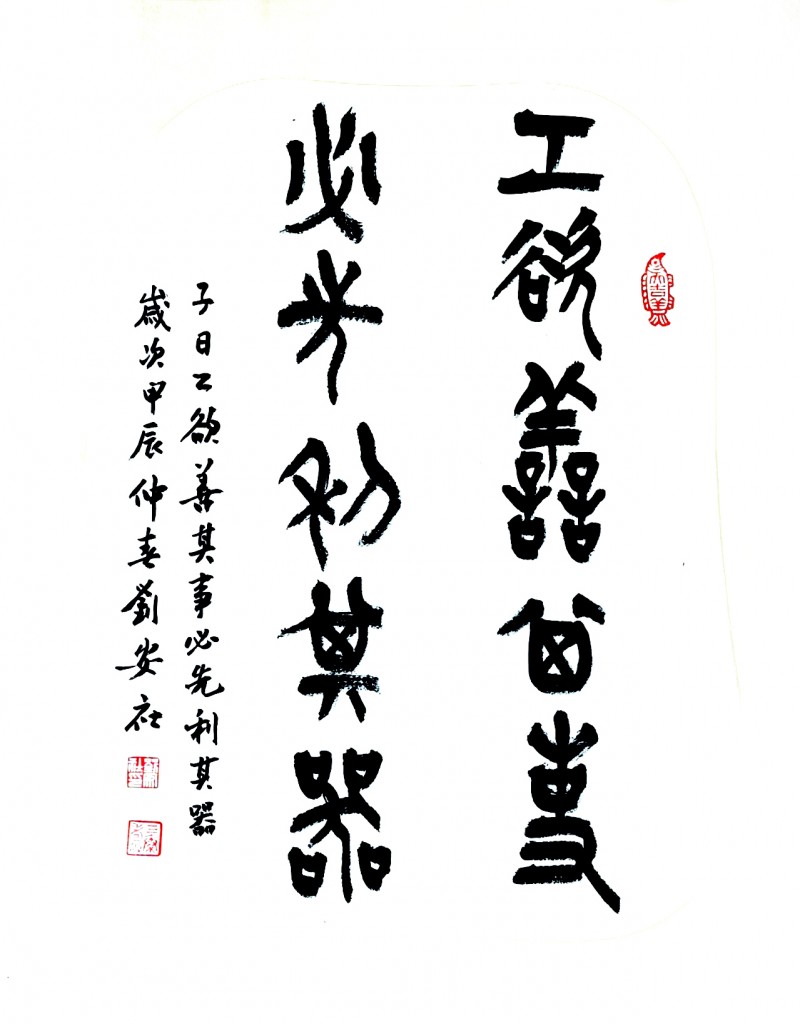 工欲善其事
必先利其器
子曰工欲善其事必先利其器
歲次甲辰仲春劉安社